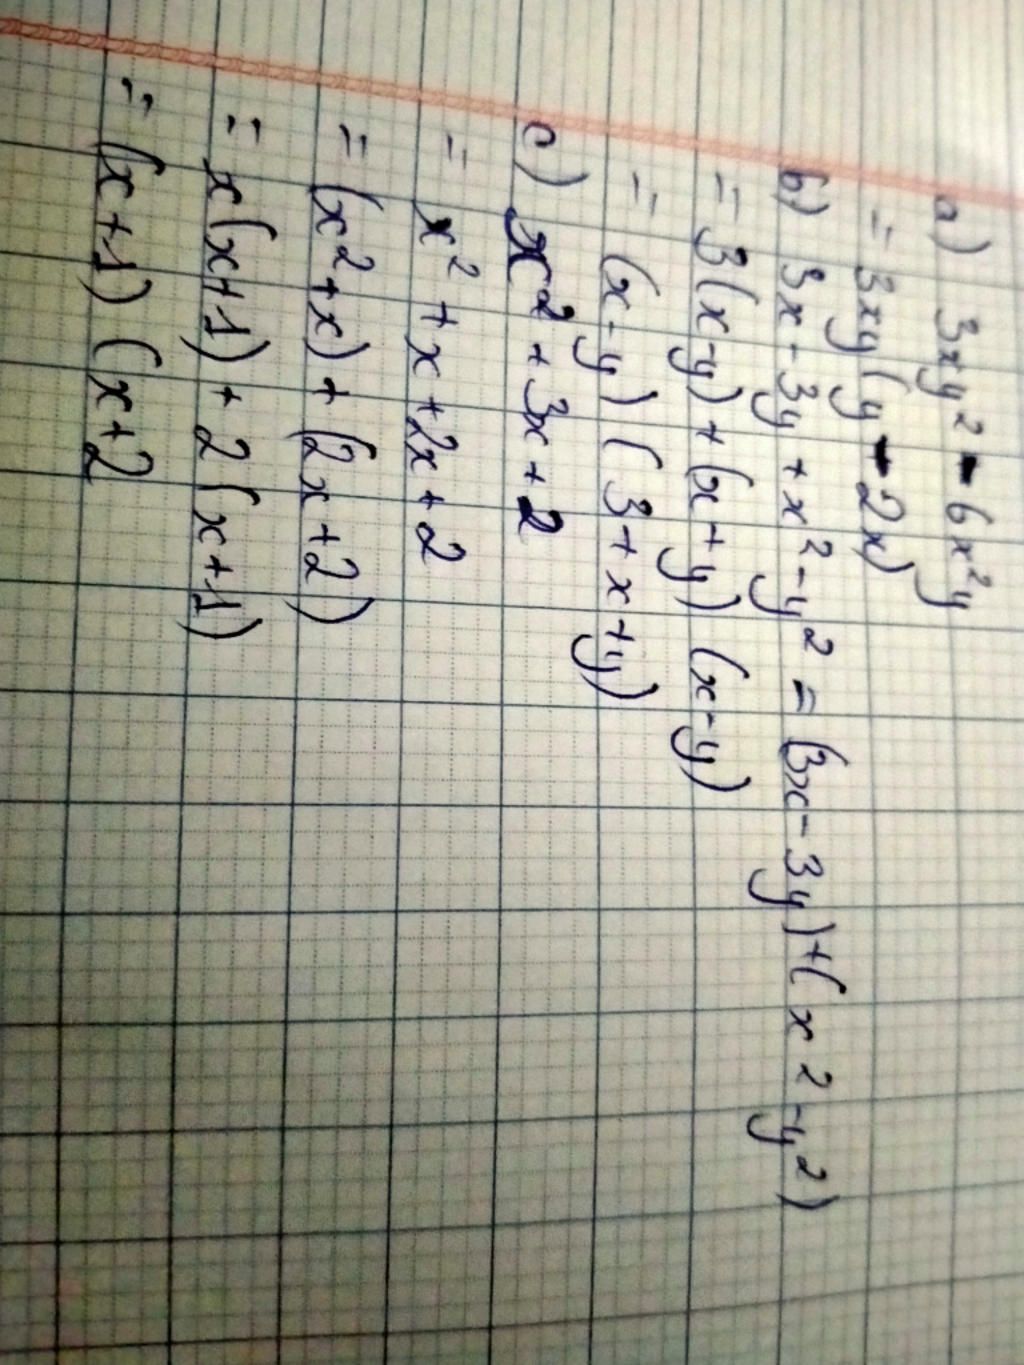 a) 3xy² - 6x²y
= 3xy(y - 2x)
b) 3x - 3y + x² - y² = (3x - 3y) + (x² - y²)
= 3(x - y) + (x + y) (x - y)
= (x - y) (3 + x + y)
c) x² + 3x + 2
= x² + x + 2x + 2
= (x² + x) + (2x + 2)
= x(x + 1) + 2(x + 1)
= (x + 1) (x + 2